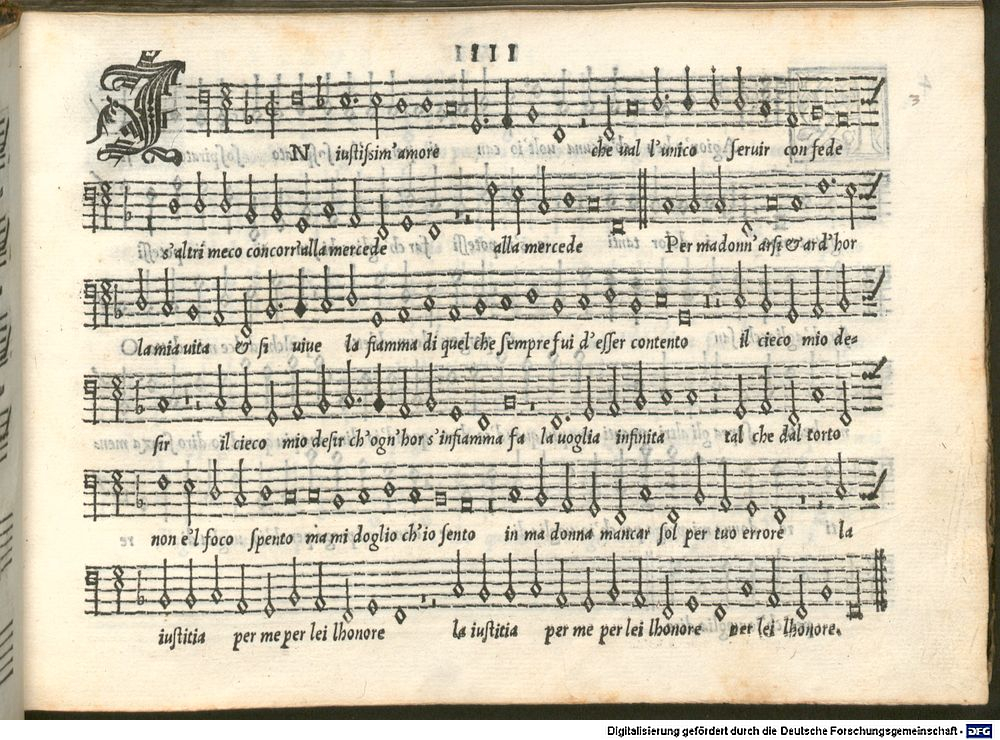 IIII
IN iustissim' amore che ual l'unico seruir con fede
s'altri meco concorr' alla mercede alla mercede Per madonn' arsi & ard' hor
la mia uita & si uiue la fiamma di quel che sempre fui d'esser contento il cieco mio de-
sir il cieco mio desir ch'ogn' hor s'infiamma fa la uoglia infinita tal che dal torto
non è'l foco spento ma mi doglio ch'io sento in ma donna mancar sol per tuo errore la
iustitia per me per lei lhonore la iustitia per me per lei lhonore per lei lhonore.
Digitalisierung gefördert durch die Deutsche Forschungsgemeinschaft - DFG